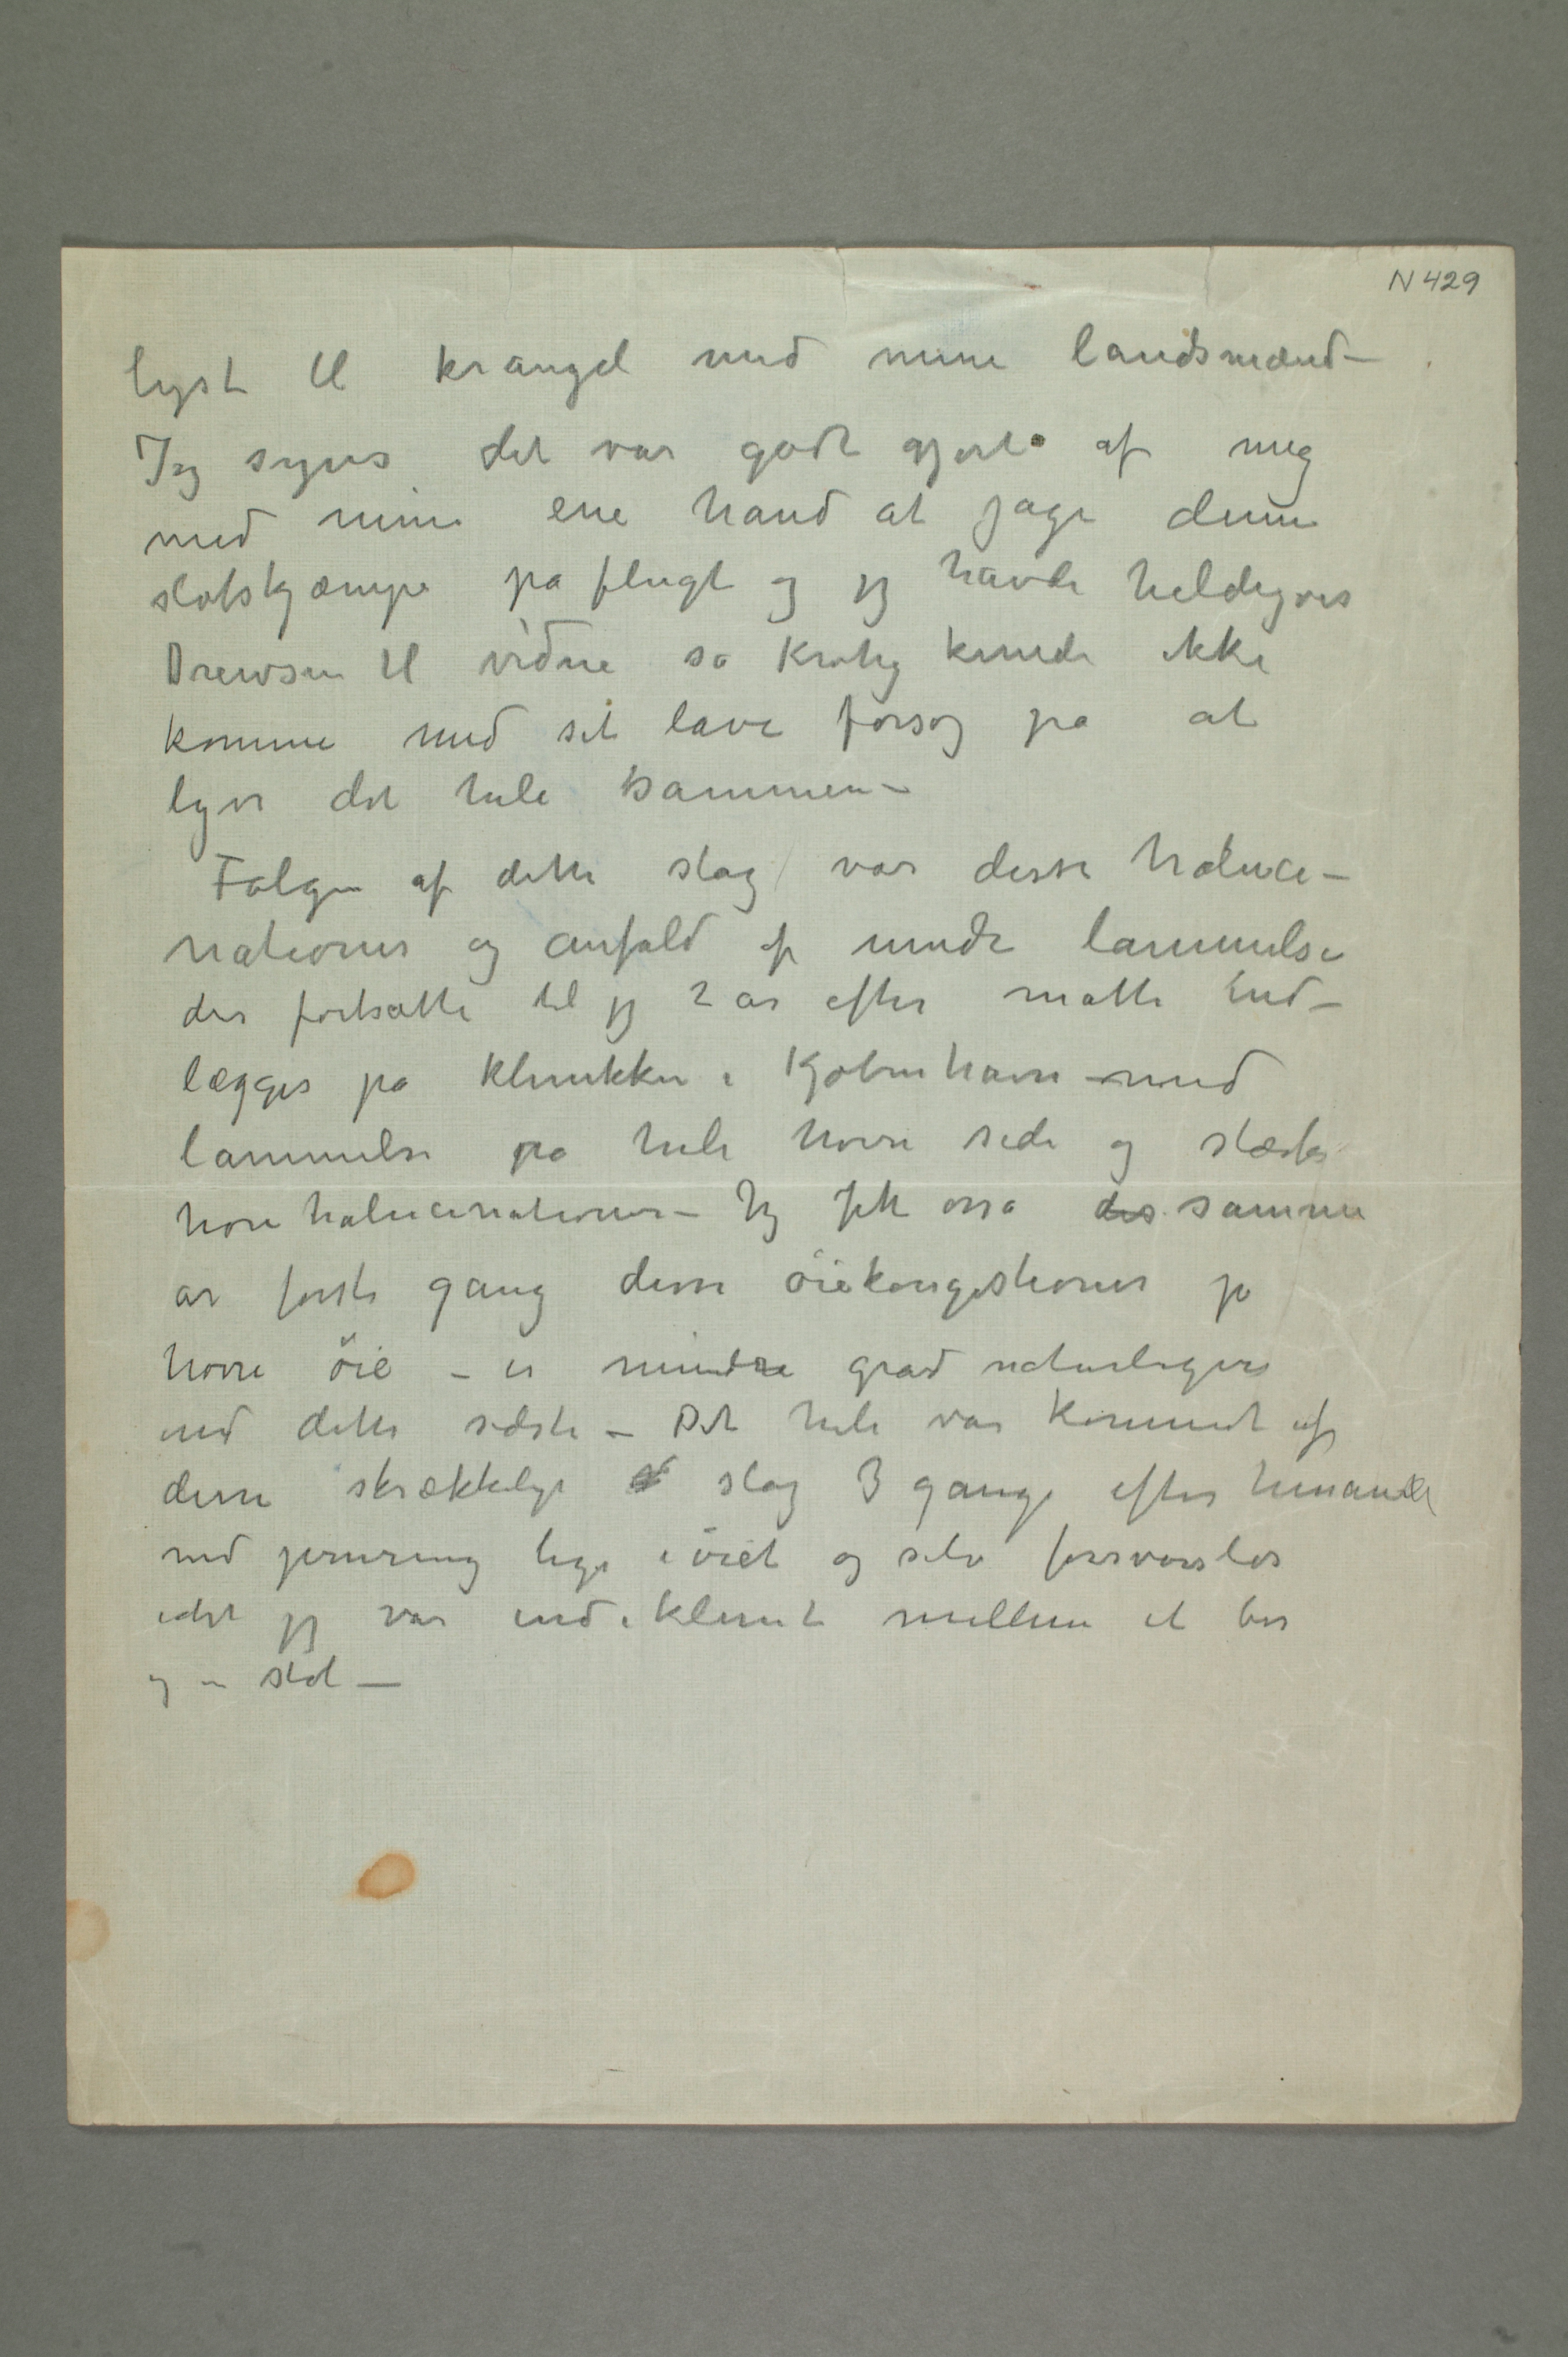 N 429
lyst til krangel med mine landsmænd –
Jeg synes det var godt gjort af mig
med min ene hand at jage denne
slotskjæmpe på flugt og jeg havde heldigvis
Drewsen til vidne så Krohg kunde ikke
komme med sit lave forsøg på at
lyve det hele sammen –
Følgen af dette slag var disse haluci–
nationer og anfald af mindre lammelse
der fortsatte til jeg 2 år efter måtte ind–
lægges på klinikken i Kjøbenhavn – med
lammelse på hele høire side og stærke
høre halucinationer – Jeg fik også des samme
år første gang disse öiekongestioner på
høire öie – i mindre grad naturligvis
end dette sidste – Det hele var kommet af
disse skrækkelige slag 3 gange efter hinanden
med jernring lige i öiet og selv forsvarsløs
idet jeg var ind i klemt mellem et bor
og en stol –